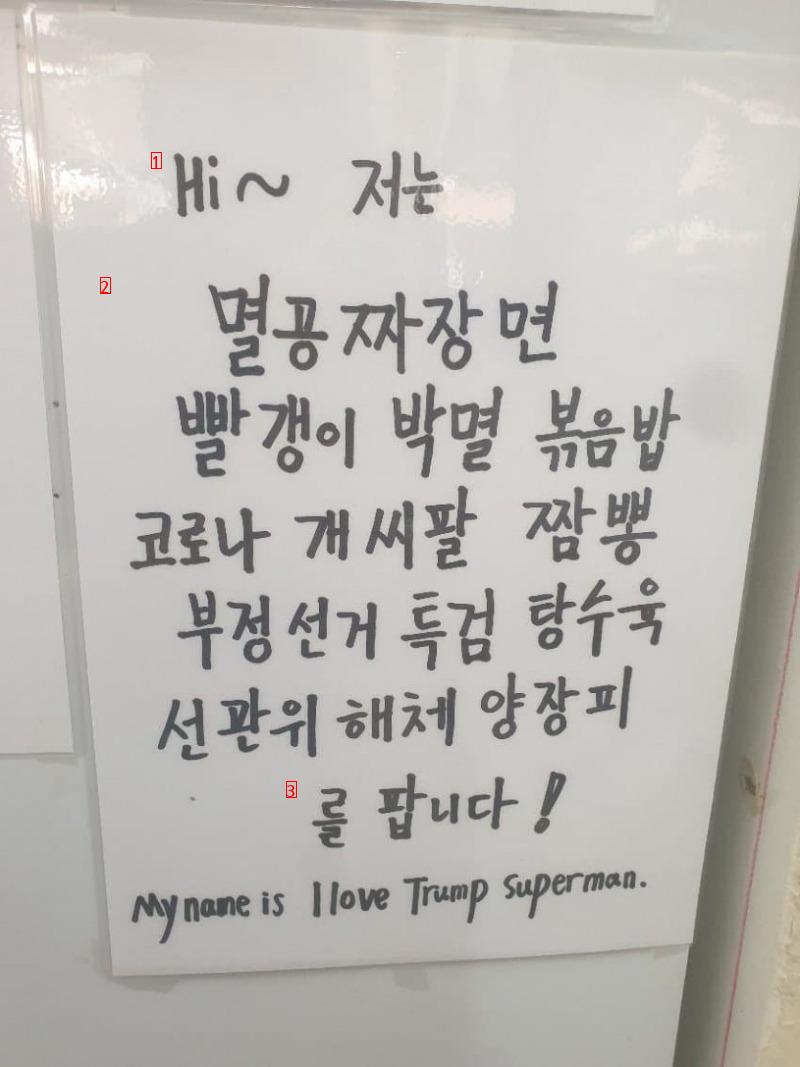 1 Hi~ 저는
2
멸공 짜장면
빨갱이 박멸 볶음밥
코로나 개씨팔 짬뽕
부정선거 특검 탕수육
선관위 해체 양장피
3 를 팝니다!
My name is I love Trump superman.